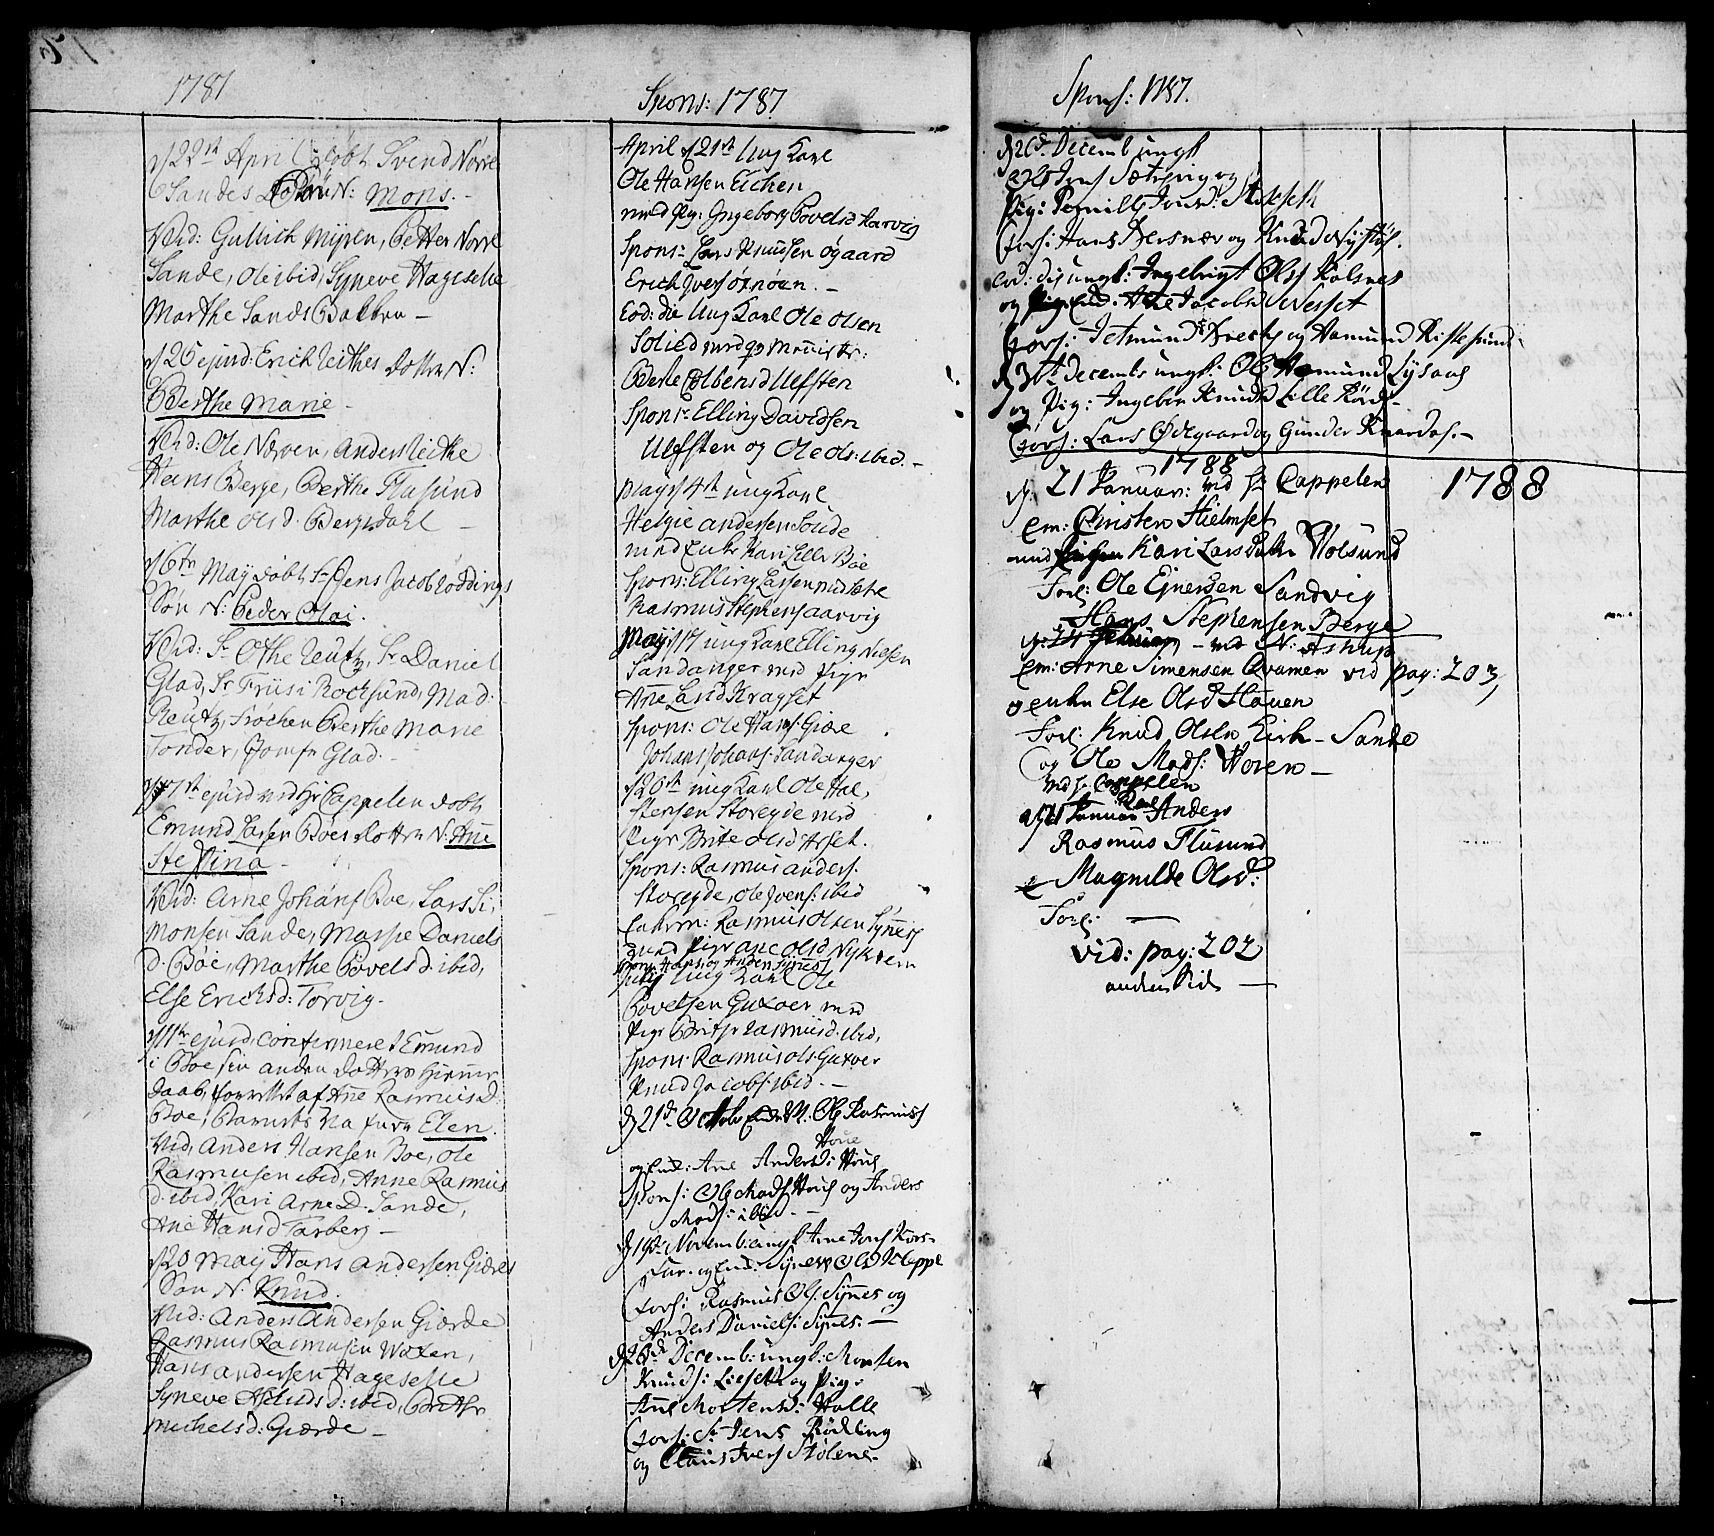 1781
d 22de April døbt Svend Nørre
Sandes N: Mons. -
Vid: Gullich Mijren, Petter Nørre
Sande, Ole ibid, Syneve Hageselle
Marthe Sands Bakken -
d 25 ejusd: Erich Leithes Dotter N:
Berthe Marie -
Vid: Ole Nerven, Anders Leithe
Hans Berge, Berthe Flusund
Marthe Olsd. Bergsdahl -
d 6te May døbt Sr Jens Jacob Røddings
Søn N: Peder Olai.
Vid: Sr Othe Reutz, Sr Daniel
Glad, Sr Friis i Rocksund, Mad:
Reutz, Frøchen Berthe Marie
Tonder, Jomfr Glad. -
ejusd ved Hr Cappelen døbt
Emund Larsen Bøes Dotter N: Ane
Stephina -
Vid: Arne Johans Boe, Lars Si,
monsen Sande, Masse Daniels
d. Bøe, Marthe Povels d. ibid,
Else Ericksd: Torvig.
d 11te ejusd, confirmeret Emund
i Boe sin anden Dotters hiemme
Daab, forrettet af Ane Rasmusd:
Boe, Barnets Nafn Elen.
Vid, Anders Hansen Boe, Ole
Rasmusen ibid, Anne Rasmus
d. ibid, Kari Arne D. Sande,
Ane Hansd Tarberg -
d 20 May Hans Andersen Giærdes
Søn N: Knud.
Vid: Anders Andersen Giærde
Rasmus Rasmusen Woxen,
Hans Andersen Hageselle
Syneve Aslaksd: ibid, Berthe
Michelsd: Giærde -
Spons: 1787
April d 21st Ung Karl
Ole Hansen Eichen
med Pig: Ingeborg Povelsd Aarvig
Spons: Lars Knudsen Øgaard
Erich Ivers Øenøen. -
Eod: die Ung Karl Ole Olsen
Solied med
Berte Olbensd Ulfsten
Spons: Elling Davidsen
Ulfsten og Ole Ols: ibid. -
May d 4th ung Karl
Helgie Andersen Soude
med Enke Kari Lille Boe
Spons: Elling Lassen
Rasmus Stephens Aarvig
May d 17 ung Karl Elling Nielsen
Sandanger med Pige
Ane Lasd Kragset
Spons: Ole Hans: Giøre
Johans Johans: Sandanger
d 26th ung Karl Ole Hal,
stensen Storegde med
Pige Brite Olsd Aset.
Spons: Rasmus Anders.
Storegde, Ole Joens: ibid
Enkem: Rasmus Olsen Synnes
med Pige Ane Olsd Nykrem
Spons: Hans, og Anders Synnes
July Ung Karl Ole
Povelsen Guxoer med
Pige Brite Rasmusd. ibid,
Spons: Rasmus Ols Guxoer
Knud Jacobs: ibid. -
d 21de Octobr Enkem. Ole Rasmuss
Houe
og Enk: Ane Andersd: Houe
Spons: Ole Mads Hous og Anders
Mads: ibid. -
d 19de Novemb: ungk Arne Jons Kors-
og Enk: Synneve Olsd Klappe
Fors: Rasmus Ols. Synnes og
Anders Daniels: Synnes. -
d 26de Decemb: ungk: Morten
Knuds: Liesett og Pige
Ane Mortensd: Halle
Fors: Sr Jens Rødding
og Claus Ivers Stølene. -
Spons: 1787.
d 26de Decemb ungk
Ols Jons Sætre og
Pig: Pernille Jonsd:
Fors: Hans Bersnær og Knud Nystøl.
eod: die ungk: Ingebrigt Ols Kalsnes
og Enk. Ane Jacobsd Nesset
Fors: Jetmund og Hamund Kiste sund
d 31te Decembr ungk: Ole Hamund Lysaae
og Pig: Ingebor Knudsd Lille Røed. -
Fors: Lars Ødegaard og Gunder Knardal. -
1788
d. 21 Januar: ved Hr Cappelen
1788
em: Christen Hielmset
med Kari Larsdatter Wolsund
Forl: Ole Ejnersen Sandvig
Hans Stephensen Berge
d: 24 - ved N: Astrup
em: Arne Simensen Qvamen vid pag: 203,
og enke Else Olsd Hauen
Forl: Knud Olsen Kirk - Sande
og Ole Mads: Woren -
ved Hr Cappelen
d 21 Januar Anders
Rasmus Flusund
e Magnilde Olsd:
Forl: -
vid: pag: 202
anden Side -